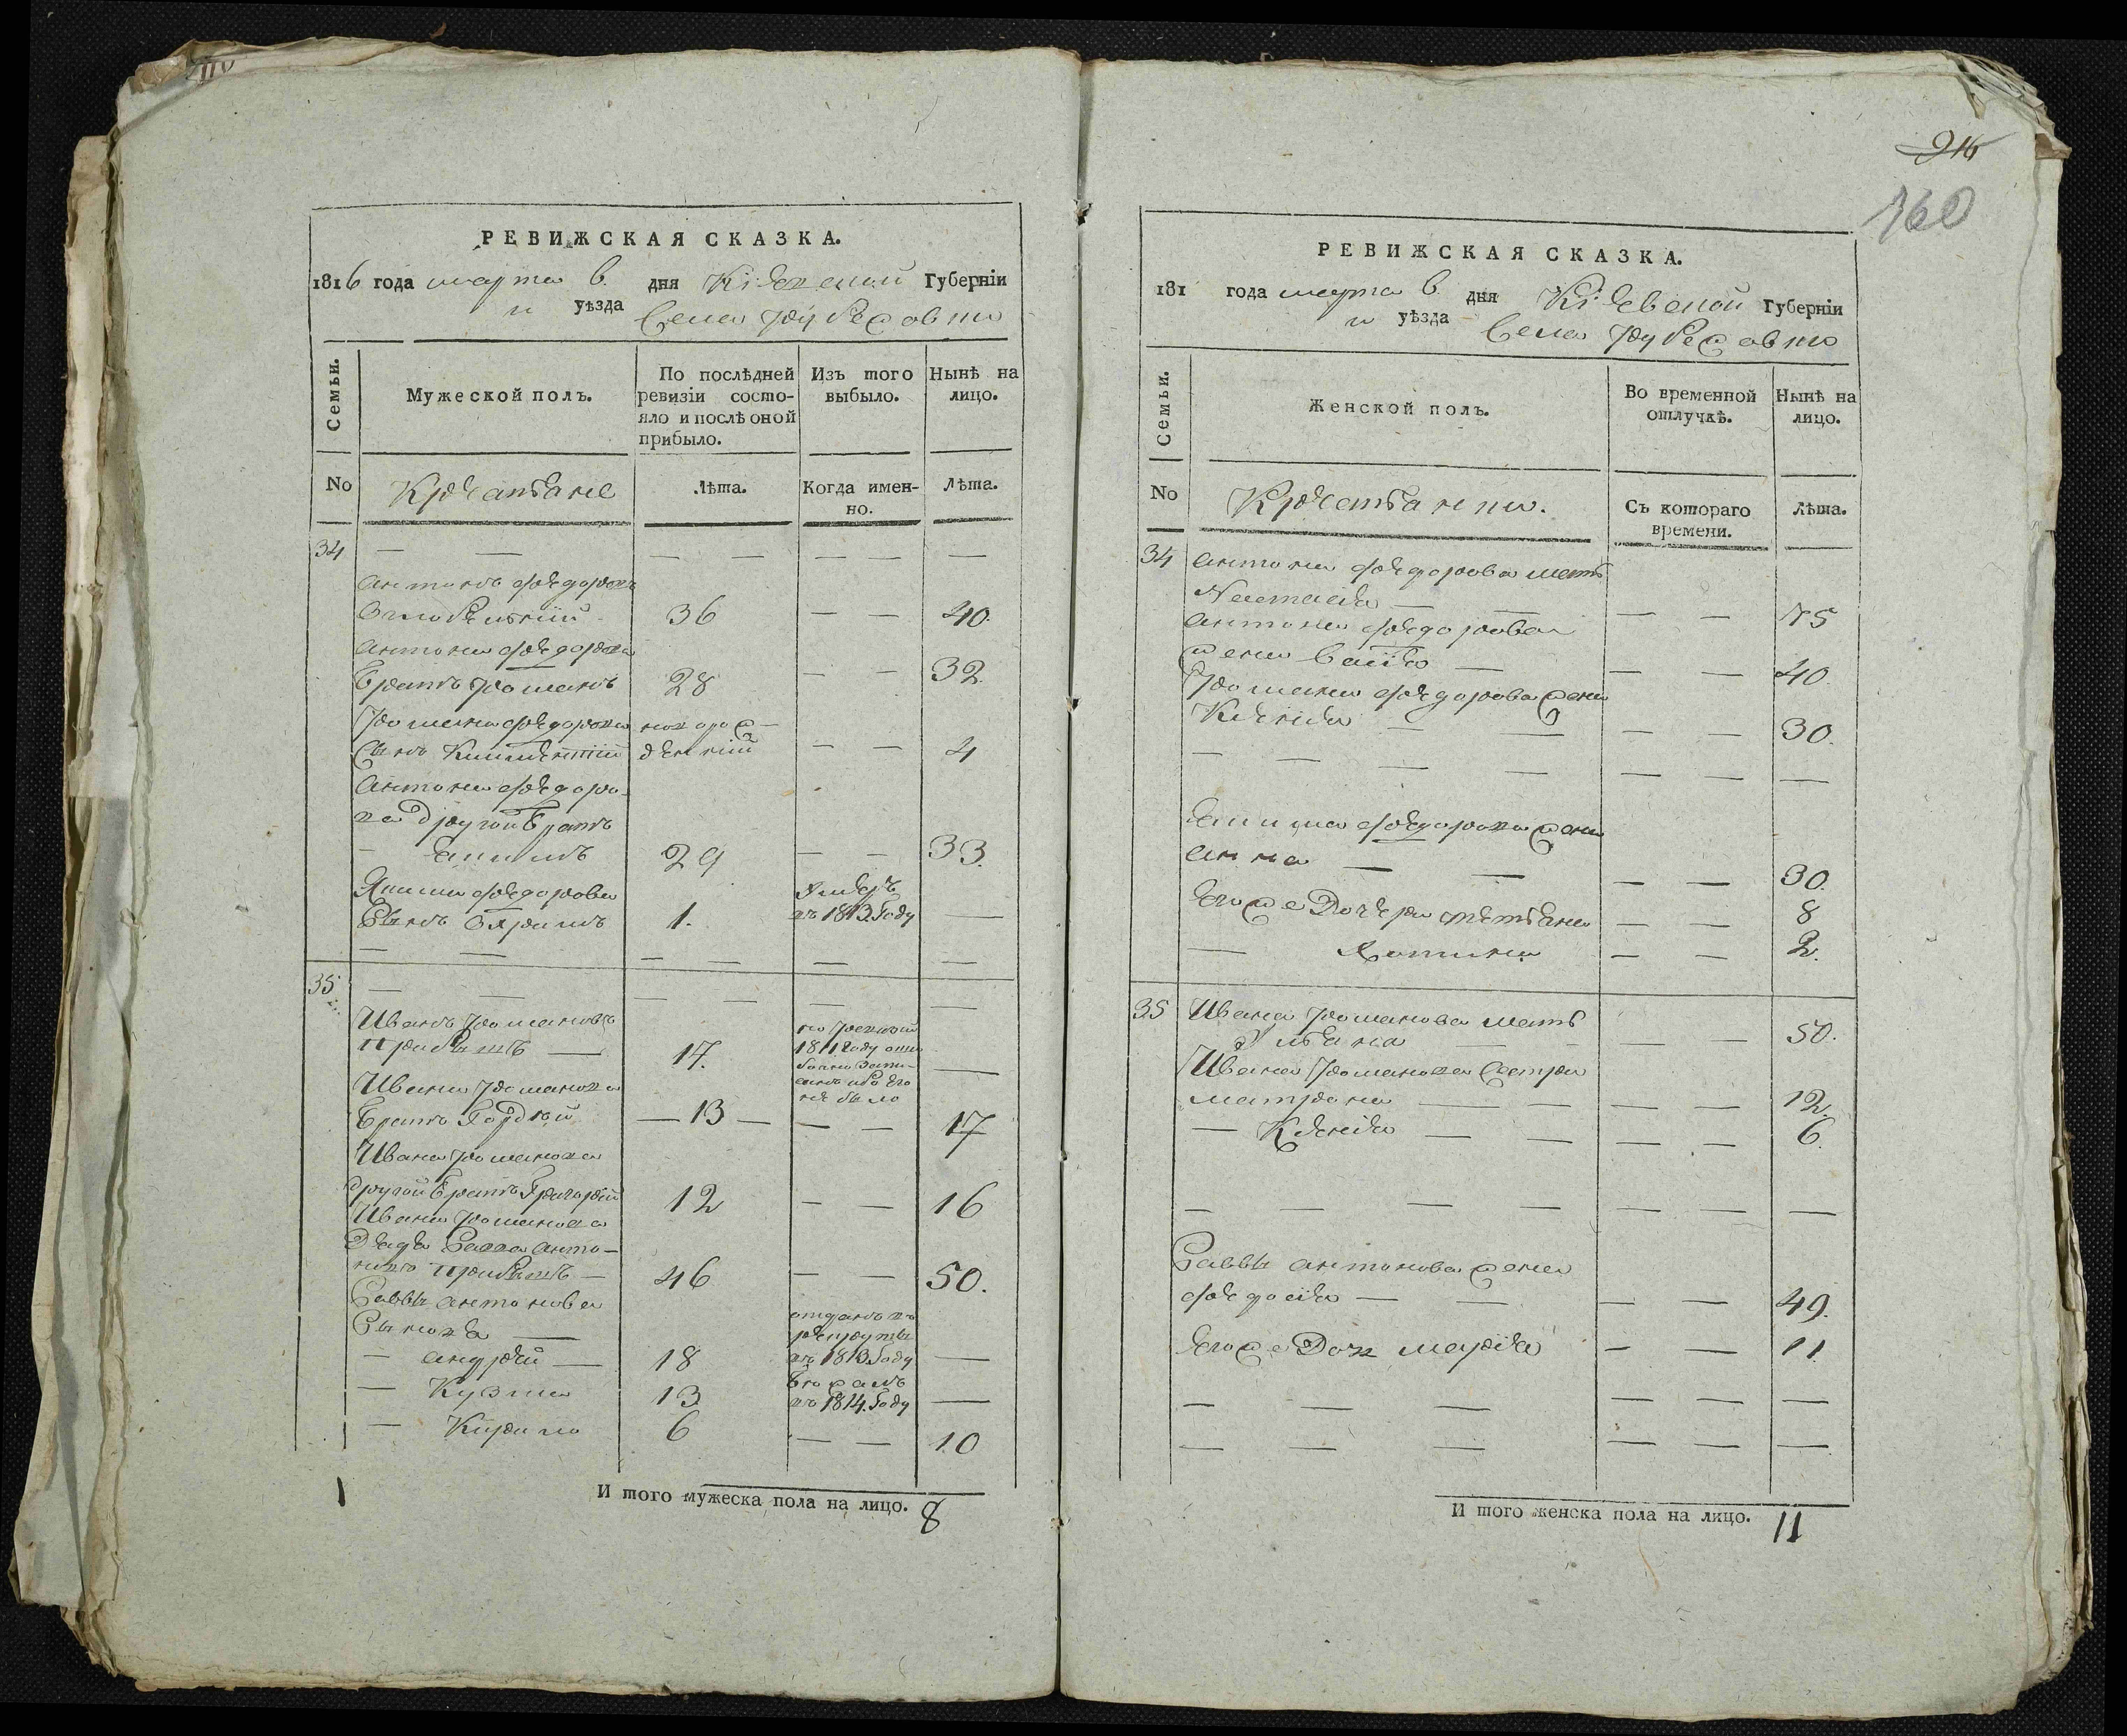 РЕВИЖСКАЯ СКАЗКА.
1816 года марта в. дня Кіевской Губерніи
и уѣзда Села
Семьи.
Мужеской полъ.
По послѣдней ревизіи состо-
яло и послѣ оной
прибыло.
Изъ того
выбыло.
Нынѣ на
лицо.
No
Лѣта.
Когда имен-
но.
Лѣта.
34
Антонъ Федоровъ
36 40.
Антона Федорова
Братъ Романъ 28 32.
Романа Федорова новорож-
Сынъ Климентій денный 4
Антона Федоро-
ва другой Братъ
Якимъ 29 33.
Якима Федорова умеръ
Сынъ 1. въ 1813. Году
35
Иванъ Романовъ
17. 1811 Году
Ивана Романова не было
Братъ Гордѣй 13 17
Ивана Романова
другой Братъ Григорій 12 16
Ивана Романова
Дядя Савва Анто-
новъ 46 50.
Саввы Антонова отданъ въ
Сыновья рекруты
Андрей 18 въ 1813. Году
Кузма 13 въ 1814. Году
Кирило 6 10
1
И того мужеска пола на лицо. 8
216
160
РЕВИЖСКАЯ СКАЗКА.
181 года марта в. дня Кіевской Губерніи
и уѣзда Села
Семьи.
Женской полъ.
Во временной
отлучкѣ.
Нынѣ на
лицо.
No
Съ котораго
времени.
Лѣта.
34 Антона Федорова мать
Настасья 75
Антона Федорова
жена 40.
Романа Федорова жена
Ксенія 30.
Якима Федорова жена
Анна 30.
Его же Дочери 8
2.
35 Ивана Романова мать
Ульяна 50.
Ивана Романова сестри
Матрона 12.
Ксенія 6.
Саввы Антонова жена
Федосія 49.
Его же Дочь Марія 11.
И того женска пола на лицо. 11